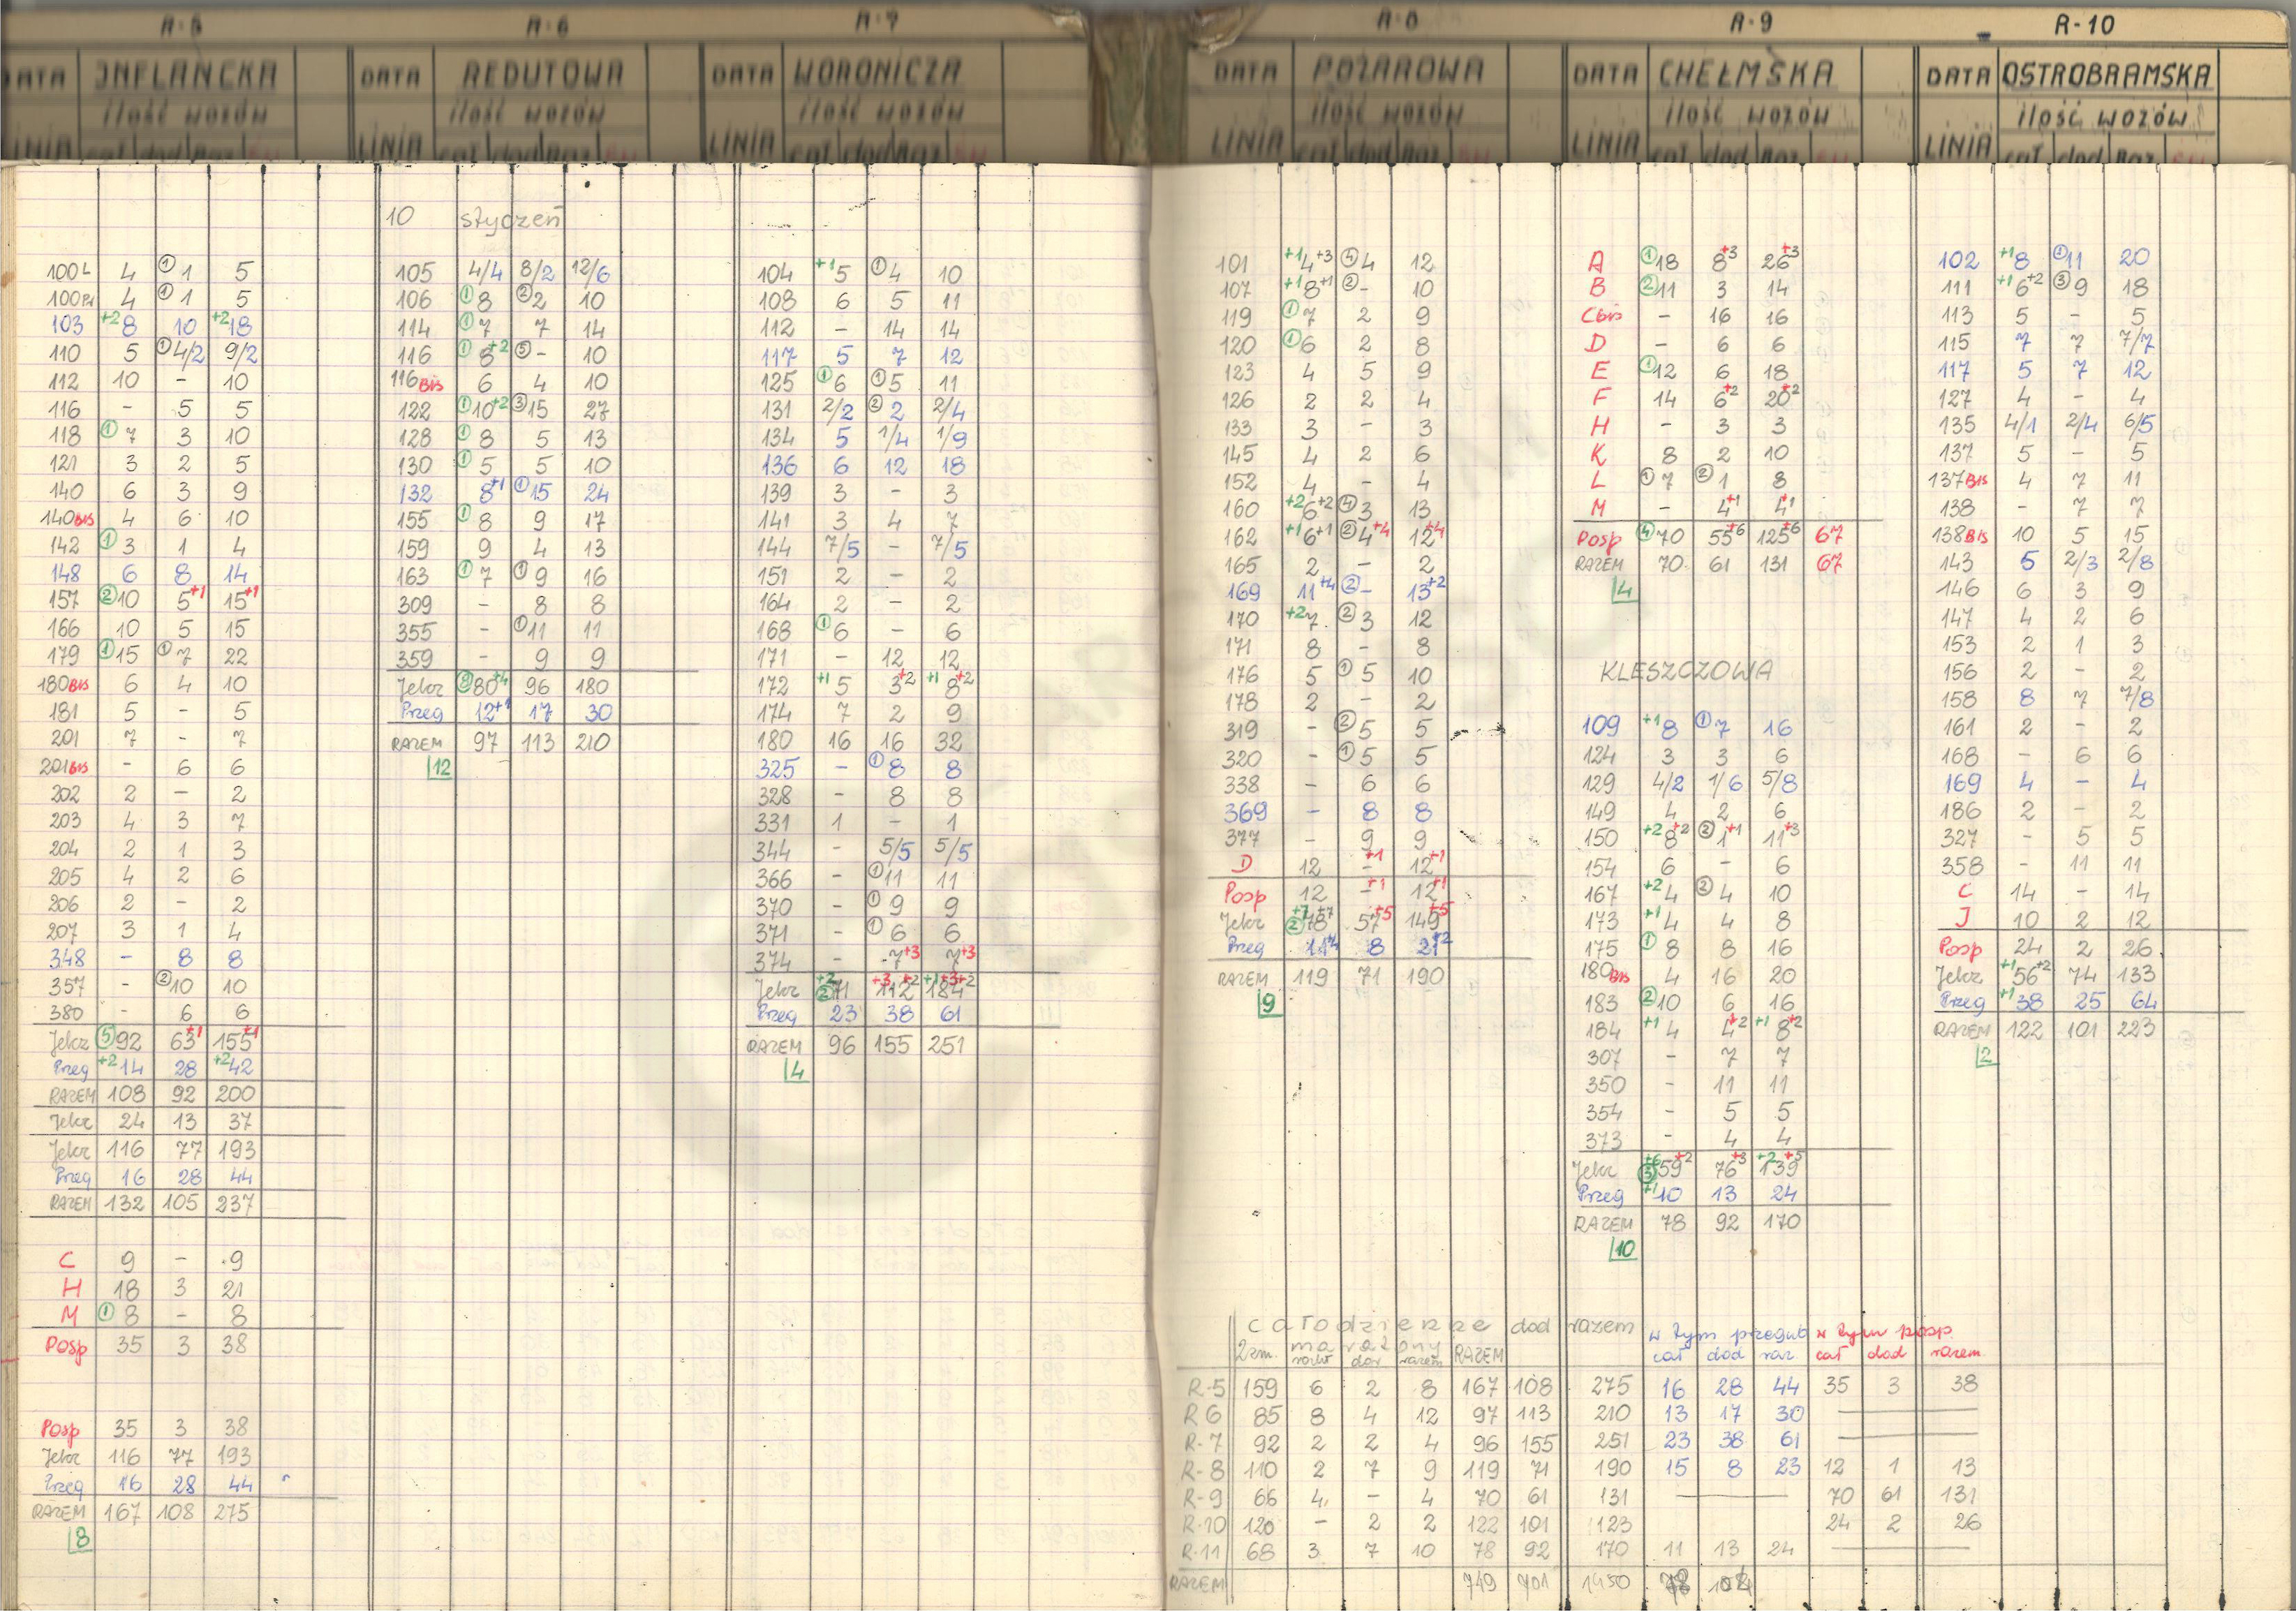 R-5
DATA INFLANCKA
ilość wozów
LINIA cał dod Raz
100L 4 ① 1 5
100Pr 4 ① 1 5
103 +2 8 10 +2 18
110 5 ① 4/2 9/2
112 10 - 10
116 - 5 5
118 ① 7 3 10
121 3 2 5
140 6 3 9
140BIS 4 6 10
142 ① 3 1 4
148 6 8 14
157 ② 10 5+1 15+1
166 10 5 15
179 ① 15 ① 7 22
180BIS 6 4 10
181 5 - 5
201 7 - 7
201BIS - 6 6
202 2 - 2
203 4 3 7
204 2 1 3
205 4 2 6
206 2 - 2
207 3 1 4
348 - 8 8
357 - ② 10 10
380 - 6 6
Jelcz ⑤ 92 63+1 155+1
Przeg +2 14 28 +2 42
RAZEM 108 92 200
Jelcz 24 13 37
Jelcz 116 77 193
Przeg 16 28 44
RAZEM 132 105 237
C 9 - 9
H 18 3 21
M ① 8 - 8
Posp 35 3 38
Posp 35 3 38
Jelcz 116 77 193
Przeg 16 28 44
RAZEM 167 108 275
8
R-6
DATA REDUTOWA
ilość wozów
LINIA cał dod Raz
10 styczeń
105 4/4 8/2 12/6
106 ① 8 ② 2 10
114 ① 7 7 14
116 ① 8+2 ⑤ - 10
116BIS 6 4 10
122 ① 10+2 ③ 15 27
128 ① 8 5 13
130 ① 5 5 10
132 8+1 ① 15 24
155 ① 8 9 17
159 9 4 13
163 ① 7 ① 9 16
309 - 8 8
355 - ① 11 11
359 - 9 9
Jelcz ⑧ 80+4 96 180
Przeg 12+1 17 30
RAZEM 97 113 210
12
R-7
DATA WORONICZA
ilość wozów
LINIA cał dod Raz
104 +1 5 ① 4 10
108 6 5 11
112 - 14 14
117 5 7 12
125 ① 6 ① 5 11
131 2/2 ② 2 2/4
134 5 1/4 1/9
136 6 12 18
139 3 - 3
141 3 4 7
144 7/5 - 7/5
151 2 - 2
164 2 - 2
168 ① 6 - 6
171 - 12 12
172 +1 5 3+2 +1 8+2
174 7 2 9
180 16 16 32
325 - ① 8 8
328 - 8 8
331 1 - 1
344 - 5/5 5/5
366 - ① 11 11
370 - ① 9 9
371 - ① 6 6
374 - 7+3 7+3
Jelcz +2 ② 71 +3 112+2 +1 184+3+2
Przeg 23 38 61
RAZEM 96 155 251
4
R-8
DATA POŻAROWA
ilość wozów
LINIA cał dod Raz
101 +1 4+3 ④ 4 12
107 +1 8+1 ② - 10
119 ① 7 2 9
120 ① 6 2 8
123 4 5 9
126 2 2 4
133 3 - 3
145 4 2 6
152 4 - 4
160 +2 6+2 ④ 3 13
162 +1 6+1 ② 4+4 12+4
165 2 - 2
169 11+4 ② - 13+2
170 +2 7 ② 3 12
171 8 - 8
176 5 ① 5 10
178 2 - 2
319 - ② 5 5
320 - ① 5 5
338 - 6 6
369 - 8 8
377 - 9 9
D 12 -+1 12+1
Posp 12 -+1 12+1
Jelcz +7 ② 78+7 57+5 149+5
Przeg 11+4 8 21+2
RAZEM 119 71 190
9
R-9
DATA CHEŁMSKA
ilość wozów
LINIA cał dod Raz
A ① 18 8+3 26+3
B ② 11 3 14
Cbis - 16 16
D - 6 6
E ① 12 6 18
F 14 6+2 20+2
H - 3 3
K 8 2 10
L ① 7 ② 1 8
M - 4+1 4+1
Posp ④ 70 55+6 125+6 67
RAZEM 70 61 131 67
4
KLESZCZOWA
109 +1 8 ① 7 16
124 3 3 6
129 4/2 1/6 5/8
149 4 2 6
150 +2 8+2 ② 1+1 11+3
154 6 - 6
167 +2 4 ② 4 10
173 +1 4 4 8
175 ① 8 8 16
180BIS 4 16 20
183 ② 10 6 16
184 +1 4 4+2 +1 8+2
307 - 7 7
350 - 11 11
354 - 5 5
373 - 4 4
Jelcz +6 ③ 59+2 76+3 +2 139+5
Przeg +1 10 13 24
RAZEM 78 92 170
10
R-10
DATA OSTROBRAMSKA
ilość wozów
LINIA cał dod Raz
102 +1 8 ① 11 20
111 +1 6+2 ③ 9 18
113 5 - 5
115 7 7 7/7
117 5 7 12
127 4 - 4
135 4/1 2/4 6/5
137 5 - 5
137BIS 4 7 11
138 - 7 7
138BIS 10 5 15
143 5 2/3 2/8
146 6 3 9
147 4 2 6
153 2 1 3
156 2 - 2
158 8 7 7/8
161 2 - 2
168 - 6 6
169 4 - 4
186 2 - 2
327 - 5 5
358 - 11 11
C 14 - 14
J 10 2 12
Posp 24 2 26
Jelcz +1 56+2 74 133
Przeg +1 38 25 64
RAZEM 122 101 223
2
całodzienne dod razem w tym przegub w tym posp
2zm. maratony RAZEM cał dod raz cał dod razem
R-5 159 6 2 8 167 108 275 16 28 44 35 3 38
R 6 85 8 4 12 97 113 210 13 17 30 —
R-7 92 2 2 4 96 155 251 23 38 61 —
R-8 110 2 7 9 119 71 190 15 8 23 12 1 13
R-9 66 4 - 4 70 61 131 — 70 61 131
R-10 120 - 2 2 122 101 123 24 2 26
R-11 68 3 7 10 78 92 170 11 13 24 —
RAZEM 749 701 1450 78